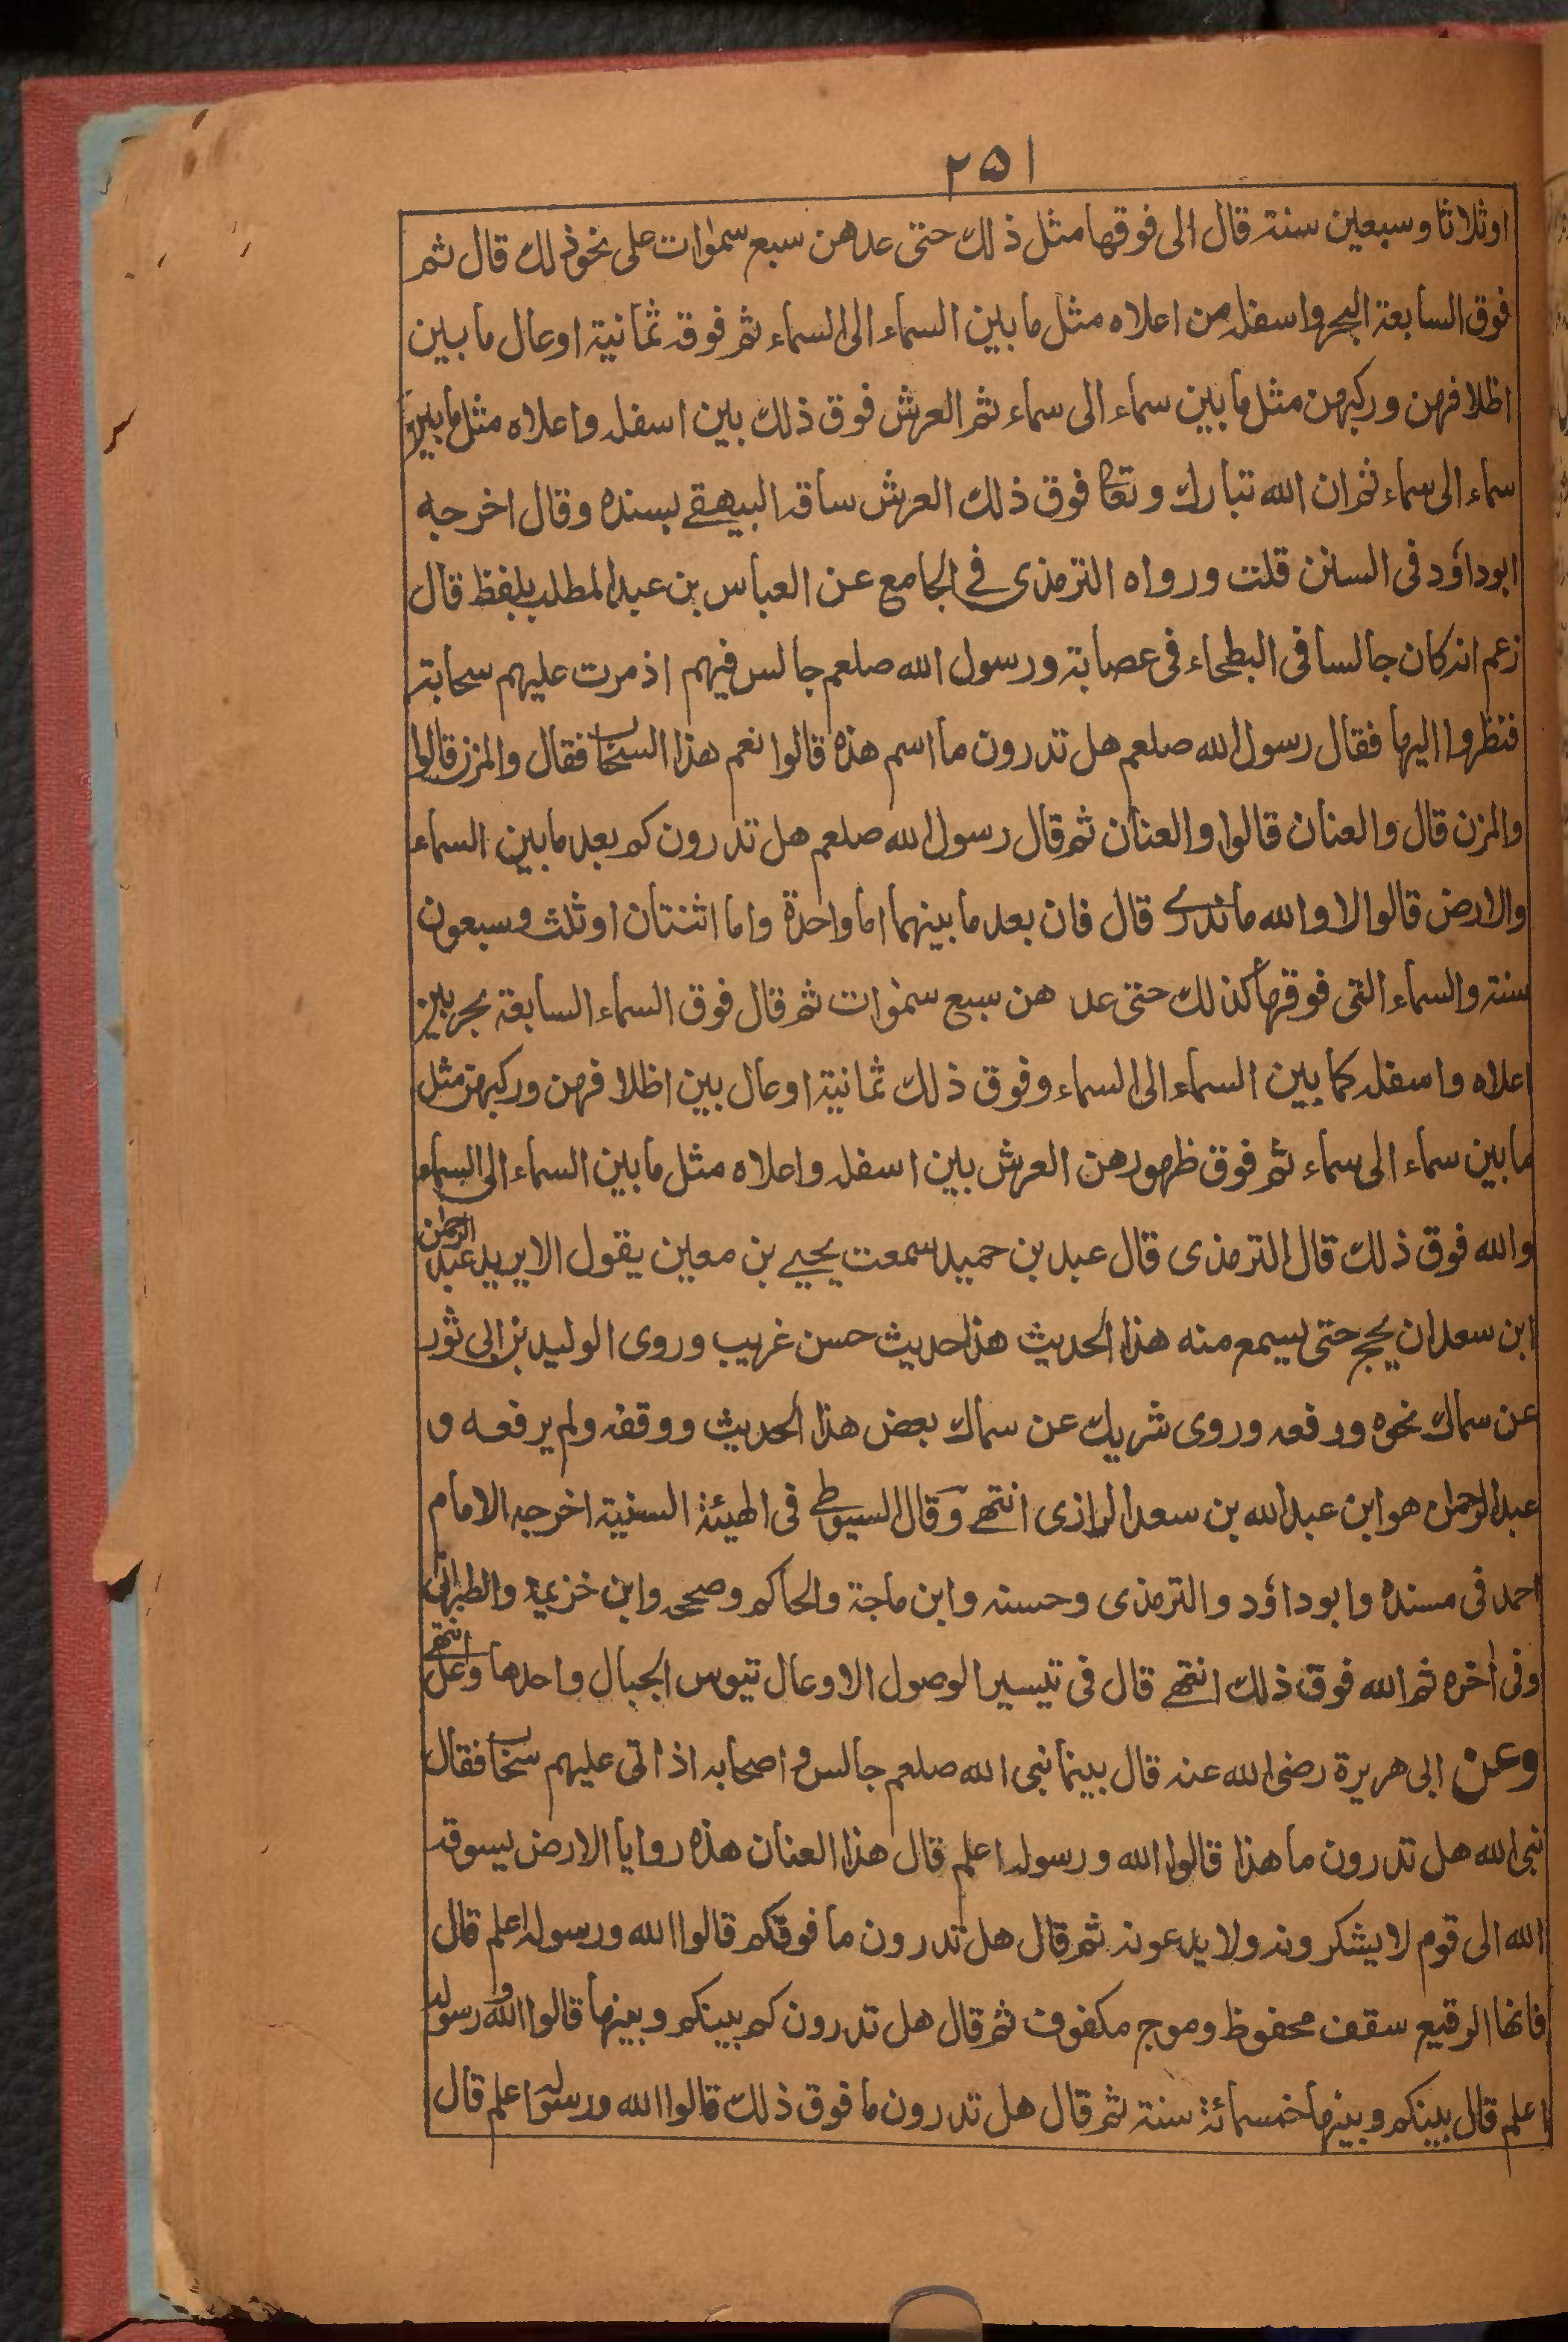 ٢٥١
اوثلاثا وسبعين سنة قال الى فوقها مثل ذلك حتى عدهن سبع سمٰوات على نحو ذلك قال ثم
فوق السابعة البحر واسفله من اعلاه مثل ما بين السماء الى السماء ثم فوقه ثمانية اوعال ما بين
اظلافهن وركبهن مثل ما بين سماء الى سماء ثم العرش فوق ذلك بين اسفله واعلاه مثل ما بين
سماء الى سماء ثم ان الله تبارك وتعالى فوق ذلك العرش ساقه البيهقي بسنده وقال اخرجه
ابو داؤد فى السنن قلت ورواه الترمذى في الجامع عن العباس بن عبد المطلب بلفظ قال
زعم انه كان جالسا فى البطحاء فى عصابة ورسول الله صلعم جالس فيهم اذ مرت عليهم سحابة
فنظروا اليها فقال رسول الله صلعم هل تدرون ما اسم هذه قالوا نعم هذا السحاب فقال والمزن قالوا
والمزن قال والعنان قالوا والعنان ثم قال رسول الله صلعم هل تدرون كم بعد ما بين السماء
والارض قالوا لا والله ما ندرے قال فان بعد ما بينهما اما واحدة واما اثنتان او ثلث وسبعون
سنة والسماء التى فوقها كذلك حتى عد هن سبع سمٰوات ثم قال فوق السماء السابعة بحر بين
اعلاه واسفله كما بين السماء الى السماء وفوق ذلك ثمانية اوعال بين اظلافهن وركبهن مثل
ما بين سماء الى سماء ثم فوق ظهورهن العرش بين اسفله واعلاه مثل ما بين السماء الى السماء
والله فوق ذلك قال الترمذى قال عبد بن حميد سمعت يحيے بن معين يقول الا يريد عبد الرحمٰن
ابن سعد ان يحج حتى يسمع منه هذا الحديث هذا حديث حسن غريب وروى الوليد بن ابى ثور
عن سماك نحوه ورفعه وروى شريك عن سماك بعض هذا الحديث ووقفه ولم يرفعه و
عبد الرحمٰن هو ابن عبد الله بن سعد الرازى انتهے وقال السيوطے فى الهيئة السنية اخرجه الامام
احمد فى مسنده وابو داؤد والترمذى وحسنه وابن ماجة والحاكم وصححه وابن خزيمة والطبرانى
وفى اٰخره ثم الله فوق ذلك انتهے قال فى تيسير الوصول الاوعال تيوس الجبال واحدها وعل انتهے
وعن ابى هريرة رضى الله عنه قال بينما نبى الله صلعم جالس و اصحابه اذ اتى عليهم سحاب فقال
نبى الله هل تدرون ما هذا قالوا الله ورسوله اعلم قال هذا العنان هذه روايا الارض يسوقه
الله الى قوم لا يشكرونه ولا يدعونه ثم قال هل تدرون ما فوقكم قالوا الله ورسوله اعلم قال
فانها الرقيع سقف محفوظ وموج مكفوف ثم قال هل تدرون كم بينكم وبينها قالوا الله ورسوله
اعلم قال بينكم وبينها خمسمائة سنة ثم قال هل تدرون ما فوق ذلك قالوا الله ورسوله اعلم قال